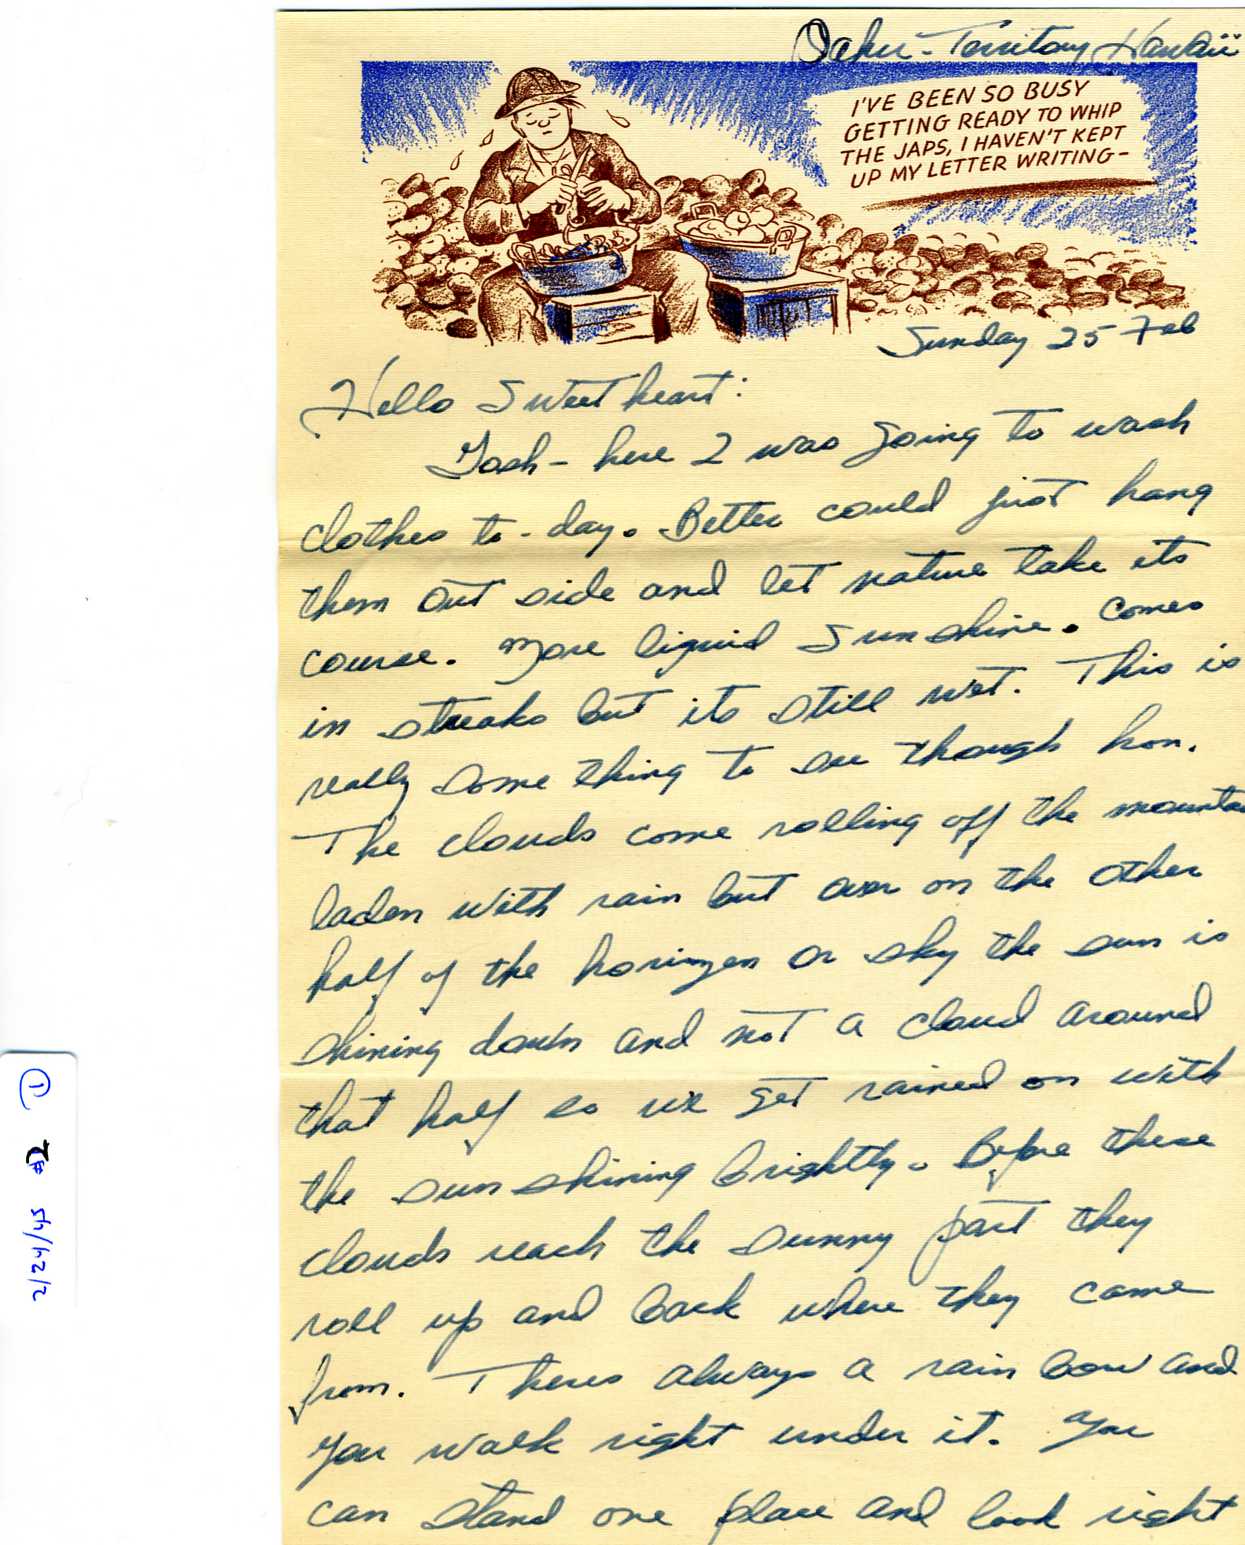 Oahu - Territory Hawaii
I'VE BEEN SO BUSY
GETTING READY TO WHIP
THE JAPS, I HAVEN'T KEPT
UP MY LETTER WRITING-
Sunday 25 Feb
Hello Sweetheart:
Gosh - here I was going to wash
clothes to-day. Better could just hang
them out side and let nature take its
course. More liquid Sunshine. Comes
in streaks but its still wet. This is
really some thing to see though hon.
The clouds come rolling off the mountai
laden with rain but over on the other
half of the horizen or sky the sun is
shining down and not a cloud around
that half so we get rained on with
the sun shining brightly. Before these
clouds reach the sunny part they
roll up and back where they came
from. Theres always a rain bow and
you walk right under it. You
can stand one place and look right
1
2/24/45